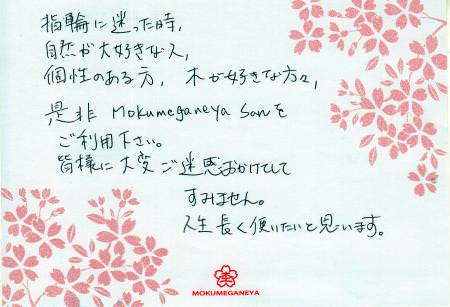 指輪に迷った時、
自然が大好きな人、
個性のある方、木が好きな方々、
是非 Mokumeganeya Sanを
ご利用下さい。
皆様に大変ご迷惑おかけしてして
すみません。
人生長く使いたいと思います。
MOKUMEGANEYA